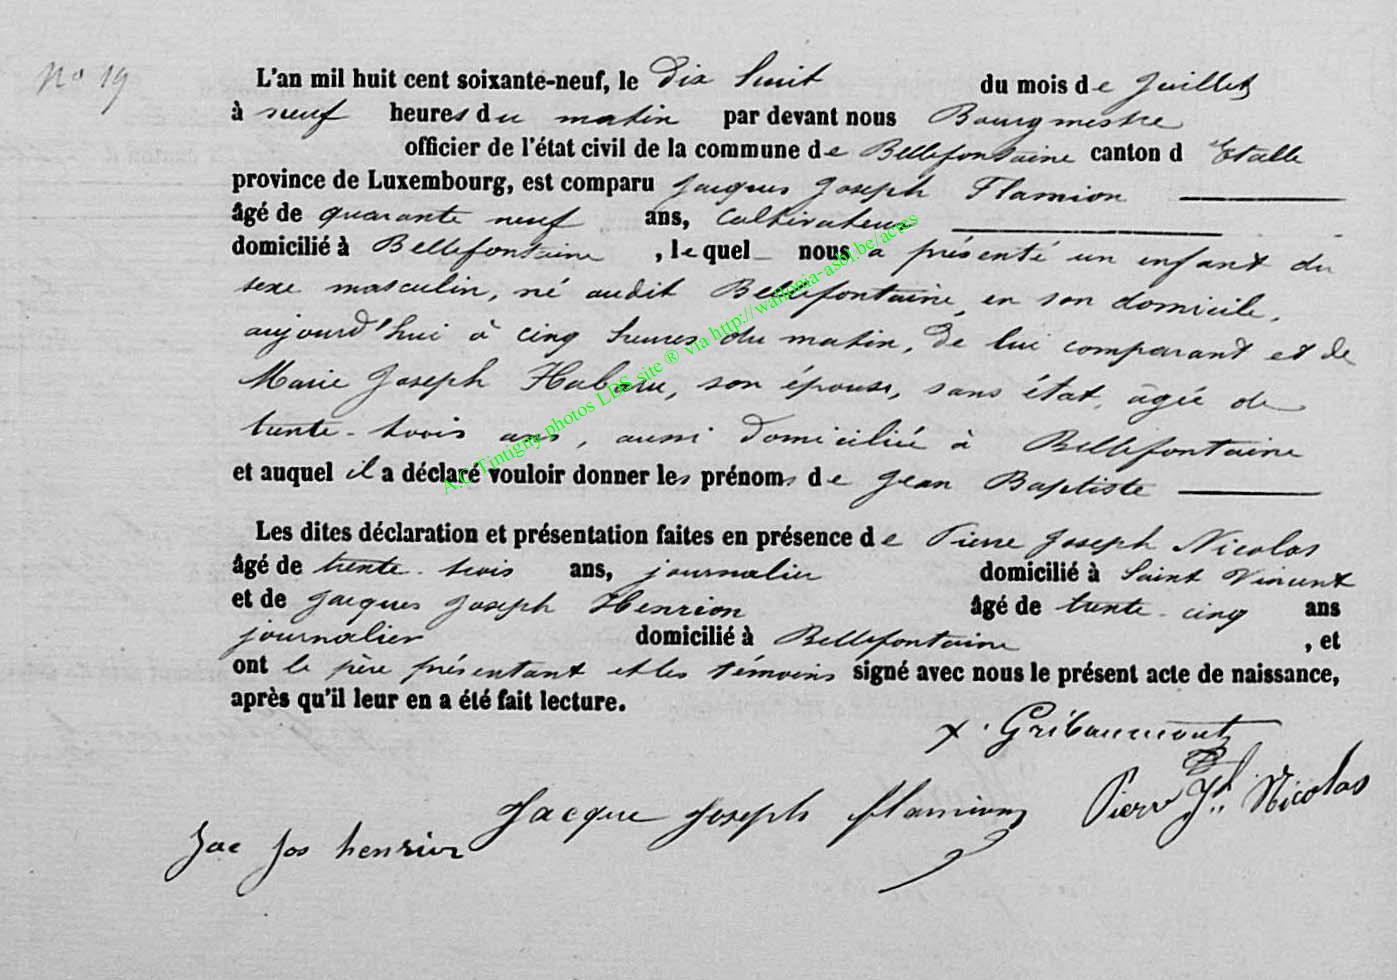 N° 19
L'an mil huit cent soixante-neuf, le Dix huit du mois de Juillet
à neuf heures du matin par devant nous Bourgmestre
officier de l'état civil de la commune de Bellefontaine canton d'Etalle
province de Luxembourg, est comparu Jacques Joseph Flamion
âgé de quarante neuf ans, Cultivateur
domicilié à Bellefontaine, lequel nous a présenté un enfant du
sexe masculin, né audit Bellefontaine, en son domicile,
aujourd'hui à cinq heures du matin, de lui comparant et de
Marie Joseph Habaru, son épouse, sans état, âgée de
trente-trois ans, aussi domiciliée à Bellefontaine
et auquel il a déclaré vouloir donner les prénoms de Jean Baptiste
Les dites déclaration et présentation faites en présence de Pierre Joseph Nicolas
âgé de trente-trois ans, journalier domicilié à Saint Vincent
et de Jacques Joseph Henrion âgé de trente-cinq ans
journalier domicilié à Bellefontaine, et
ont le père présentant et les témoins signé avec nous le présent acte de naissance,
après qu'il leur en a été fait lecture.
x. Gribaumont
Jacque Joseph flamion Pierre Jh Nicolas
Jac Jos henrion
A.C Tintigny photos LDS site ® via http://wallonia-asbl.be/actes